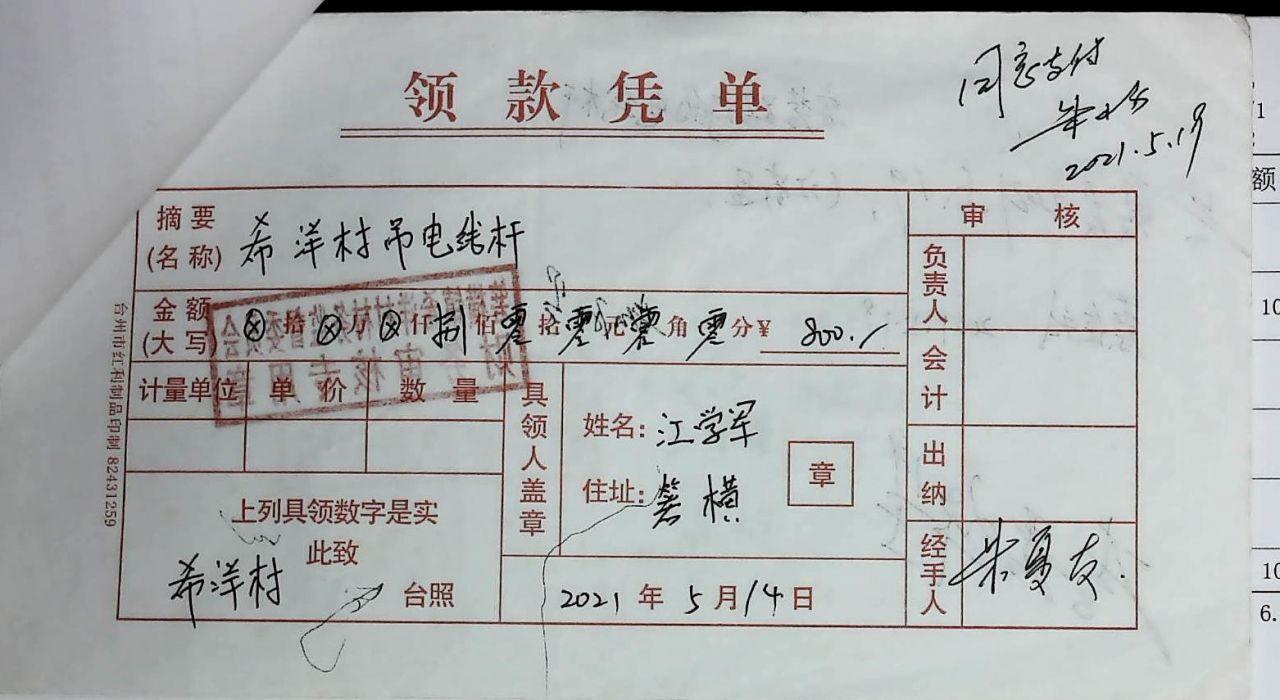 领款凭单
同意支付
2021.5.19
摘要
(名称)
希洋村吊电线杆
审核
负责人
金额
(大写)
⊗拾⊗万⊗仟捌佰零拾零元零角零分¥ 800./
会计
计量单位 单价 数量
具领人盖章
姓名: 江学军
章
住址: 箬横
出纳
上列具领数字是实
此致
希洋村 台照
2021年5月14日
经手人
朱夏友.
台州市红利制品印制 82431259
1
额
10
10
6.